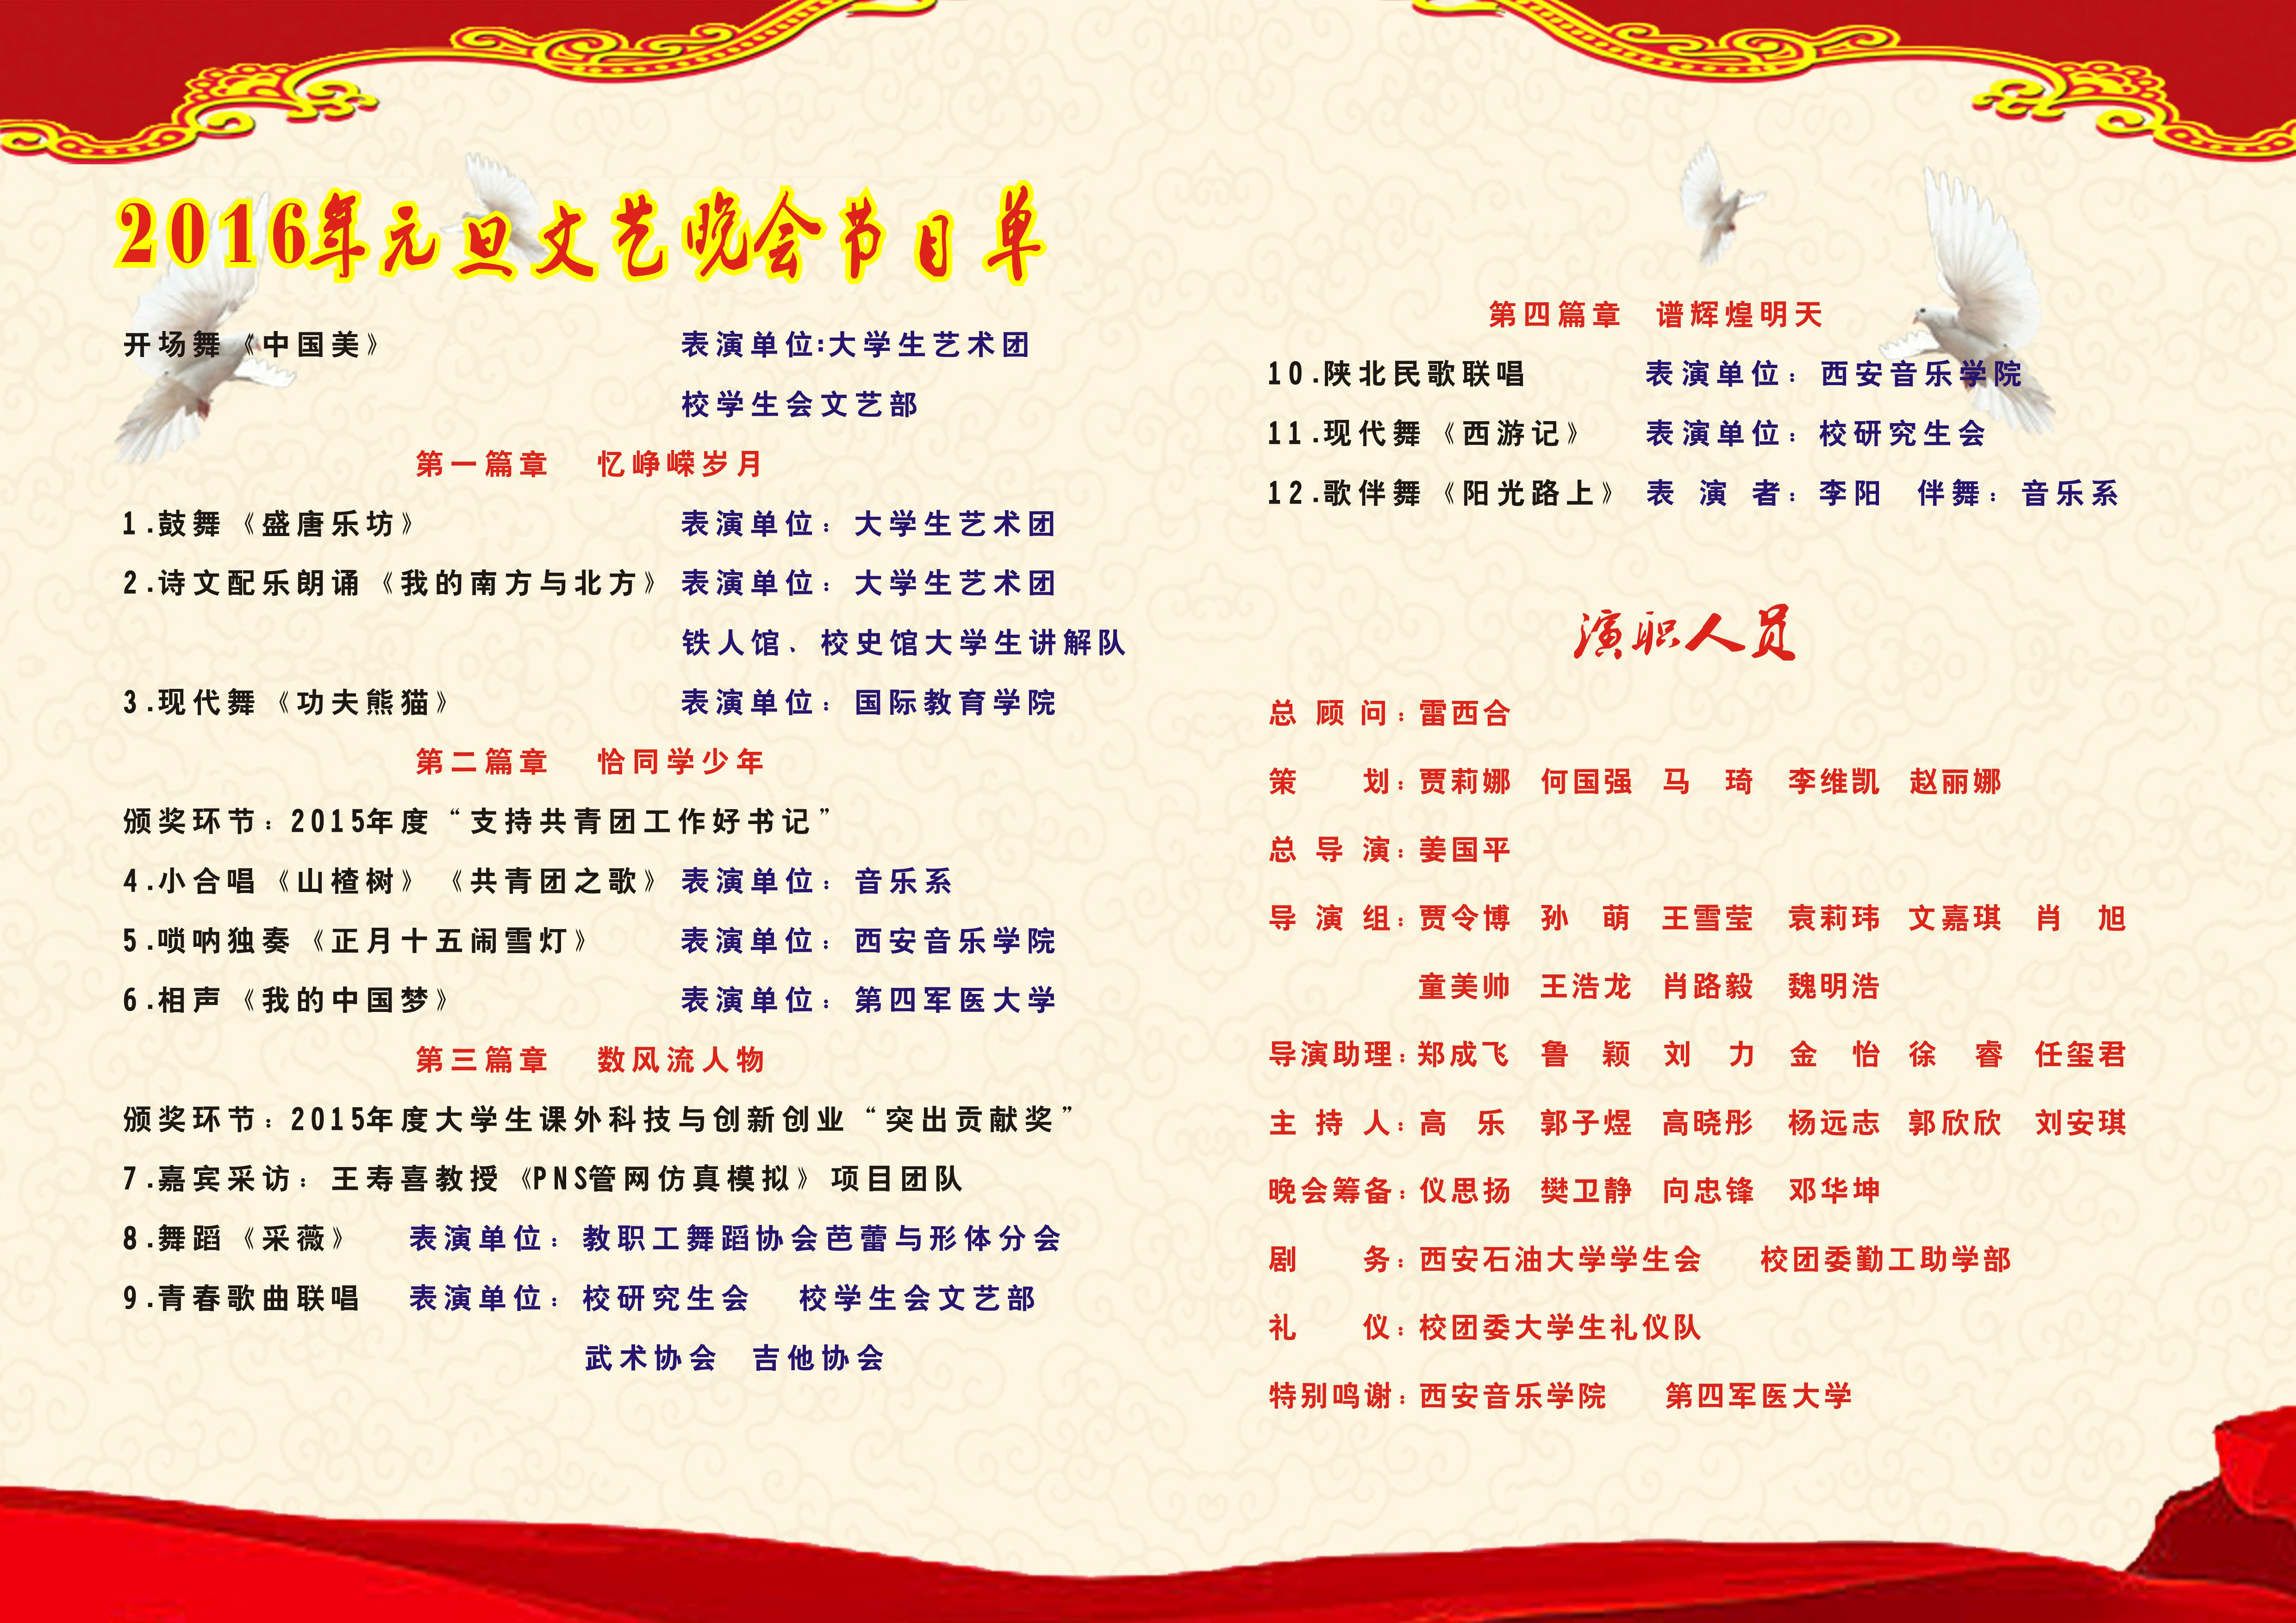 2016年元旦文艺晚会节目单
开场舞《中国美》 表演单位:大学生艺术团
校学生会文艺部
第一篇章 忆峥嵘岁月
1.鼓舞《盛唐乐坊》 表演单位：大学生艺术团
2.诗文配乐朗诵《我的南方与北方》 表演单位：大学生艺术团
铁人馆、校史馆大学生讲解队
3.现代舞《功夫熊猫》 表演单位：国际教育学院
第二篇章 恰同学少年
颁奖环节：2015年度“支持共青团工作好书记”
4.小合唱《山楂树》《共青团之歌》 表演单位：音乐系
5.唢呐独奏《正月十五闹雪灯》 表演单位：西安音乐学院
6.相声《我的中国梦》 表演单位：第四军医大学
第三篇章 数风流人物
颁奖环节：2015年度大学生课外科技与创新创业“突出贡献奖”
7.嘉宾采访：王寿喜教授《PNS管网仿真模拟》项目团队
8.舞蹈《采薇》 表演单位：教职工舞蹈协会芭蕾与形体分会
9.青春歌曲联唱 表演单位：校研究生会 校学生会文艺部
武术协会 吉他协会
第四篇章 谱辉煌明天
10.陕北民歌联唱 表演单位：西安音乐学院
11.现代舞《西游记》 表演单位：校研究生会
12.歌伴舞《阳光路上》 表演者：李阳 伴舞：音乐系
演职人员
总顾问：雷西合
策划：贾莉娜 何国强 马琦 李维凯 赵丽娜
总导演：姜国平
导演组：贾令博 孙萌 王雪莹 袁莉玮 文嘉琪 肖旭
童美帅 王浩龙 肖路毅 魏明浩
导演助理：郑成飞 鲁颖 刘力 金怡 徐睿 任玺君
主持人：高乐 郭子煜 高晓彤 杨远志 郭欣欣 刘安琪
晚会筹备：仪思扬 樊卫静 向忠锋 邓华坤
剧务：西安石油大学学生会 校团委勤工助学部
礼仪：校团委大学生礼仪队
特别鸣谢：西安音乐学院 第四军医大学